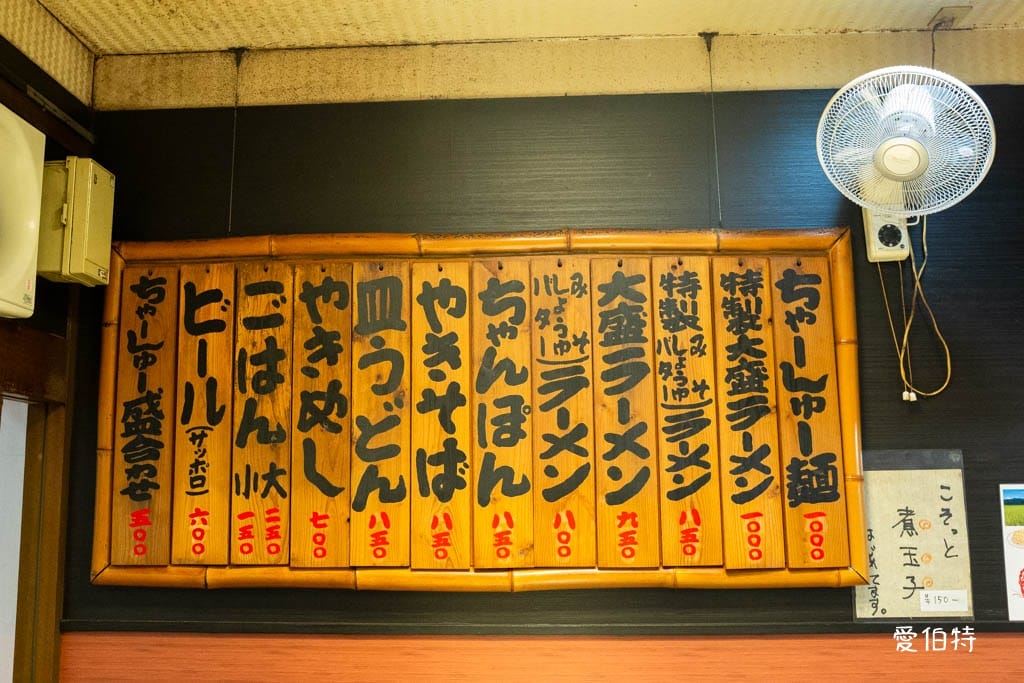 ちゃーしゅー麺 一〇〇〇
特製大盛ラーメン 一〇〇〇
特製(みそ しょうゆ バター)ラーメン 八五〇
大盛ラーメン 九五〇
(みそ しょうゆ バター)ラーメン 八〇〇
ちゃんぽん 八五〇
やきそば 八五〇
皿うどん 八五〇
やきめし 七〇〇
ごはん 大 二五〇 小 一五〇
ビール(サッポロ) 六〇〇
ちゃーしゅー盛合わせ 五〇〇
こそっと
煮玉子
はじめてます。
¥150-
愛伯特